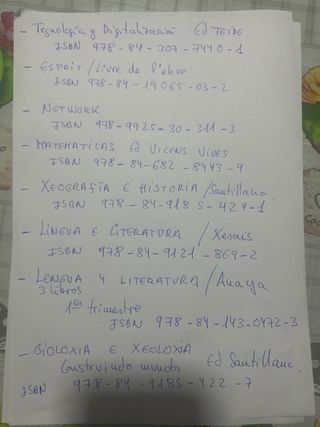 - Tecnología y Digitalización Ed TEIDE
ISBN 978-84-307-7440-1
- ESPRIT / Livre de l'élève
ISBN 978-84-19065-03-2
- NETWORK
ISBN 978-9925-30-311-3
- MATEMATICAS Ed VICENS VIVES
ISBN 978-84-682-8443-9
- XEOGRAFÍA E HISTORIA / Santillana
ISBN 978-84-9185-424-1
- LINGUA E LITERATURA / Xerais
ISBN 978-84-9121-869-2
- LENGUA Y LITERATURA / Anaya
3 libros
1er trimestre
ISBN 978-84-143-0472-3
- BIOLOXIA E XEOLOXIA
Construindo mundos Ed Santillana
ISBN 978-84-9185-422-7